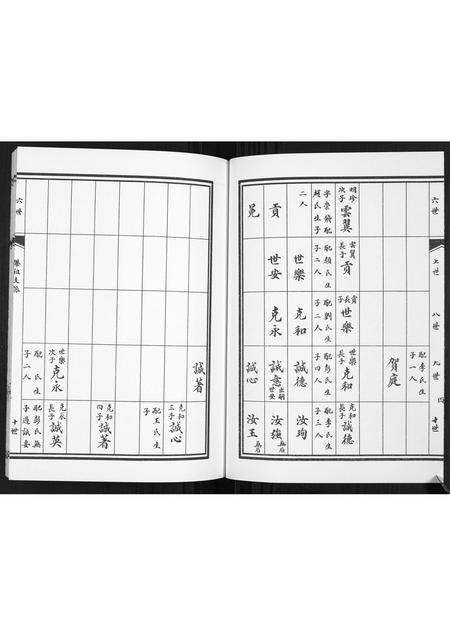 六世
七世
八世
九世
十世
四
配李氏生
子一人
賀庭
明珍
次子
雲翼
字崇飛配
趙氏生子
二人
雲翼
長子
貢
配顏氏生
子二人
貢長子
世樂
配劉氏生
子二人
世樂
長子
克和
配彭氏生
子四人
克和
長子
誠德
配李氏生
子三人
世樂
克和
誠德
汝珣
貢
世安
克永
誠意
出嗣
世安
汝強
無后
誠心
汝玉
無后
誠著
克和
三子
誠心
配王氏生
子
克和
四子
誠著
世樂
次子
克永
配氏生
子二人
克永
長子
誠英
配彭氏無
子過誠安
六世
勝祖支派
十世